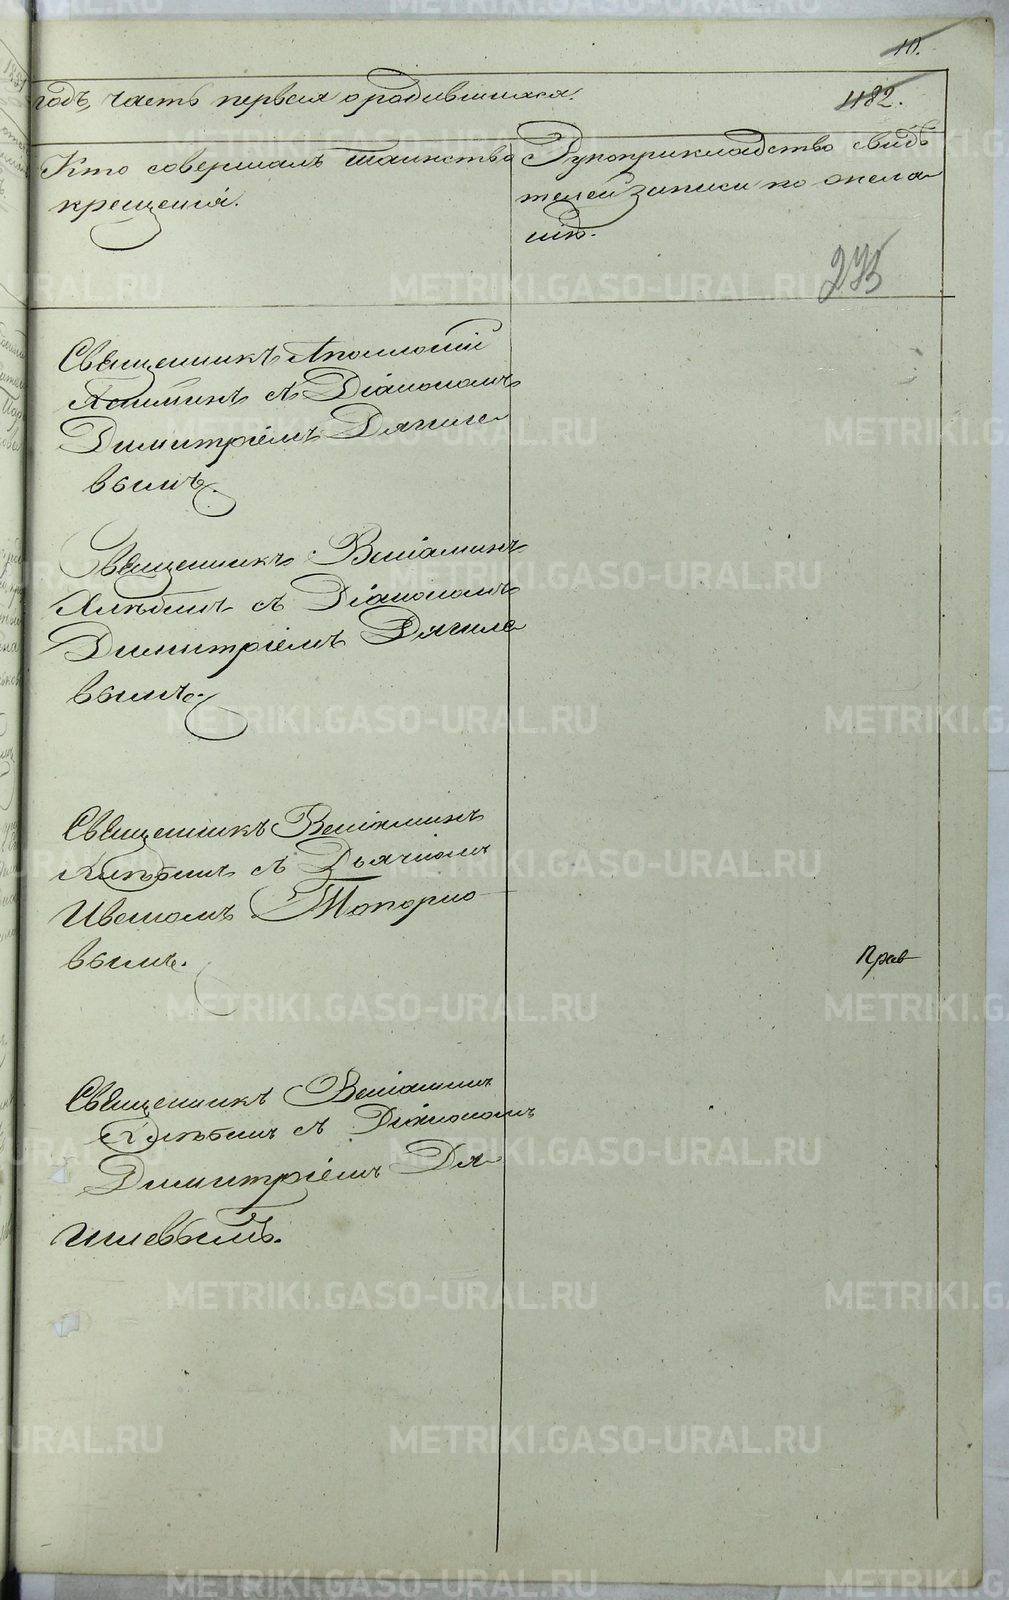 10.
годъ, часть первая о родившихся.
1182.
Кто совершалъ таинство
крещенія.
Рукоприкладство свидѣ
телей записи по жела
нію.
275
Священникъ Аполлоній
съ Діакономъ
Димитріемъ Дягиле
вымъ.
Священникъ Веніаминъ
Хлѣбинъ съ Діакономъ
Димитріемъ Дягиле
вымъ.
Священникъ Веніаминъ
Хлѣбинъ съ Дьячкомъ
Иваномъ Топорко
вымъ.
Прав
Священникъ Веніаминъ
Хлѣбинъ съ Діакономъ
Димитріемъ Дя
гилевымъ.
METRIKI.GASO-URAL.RU